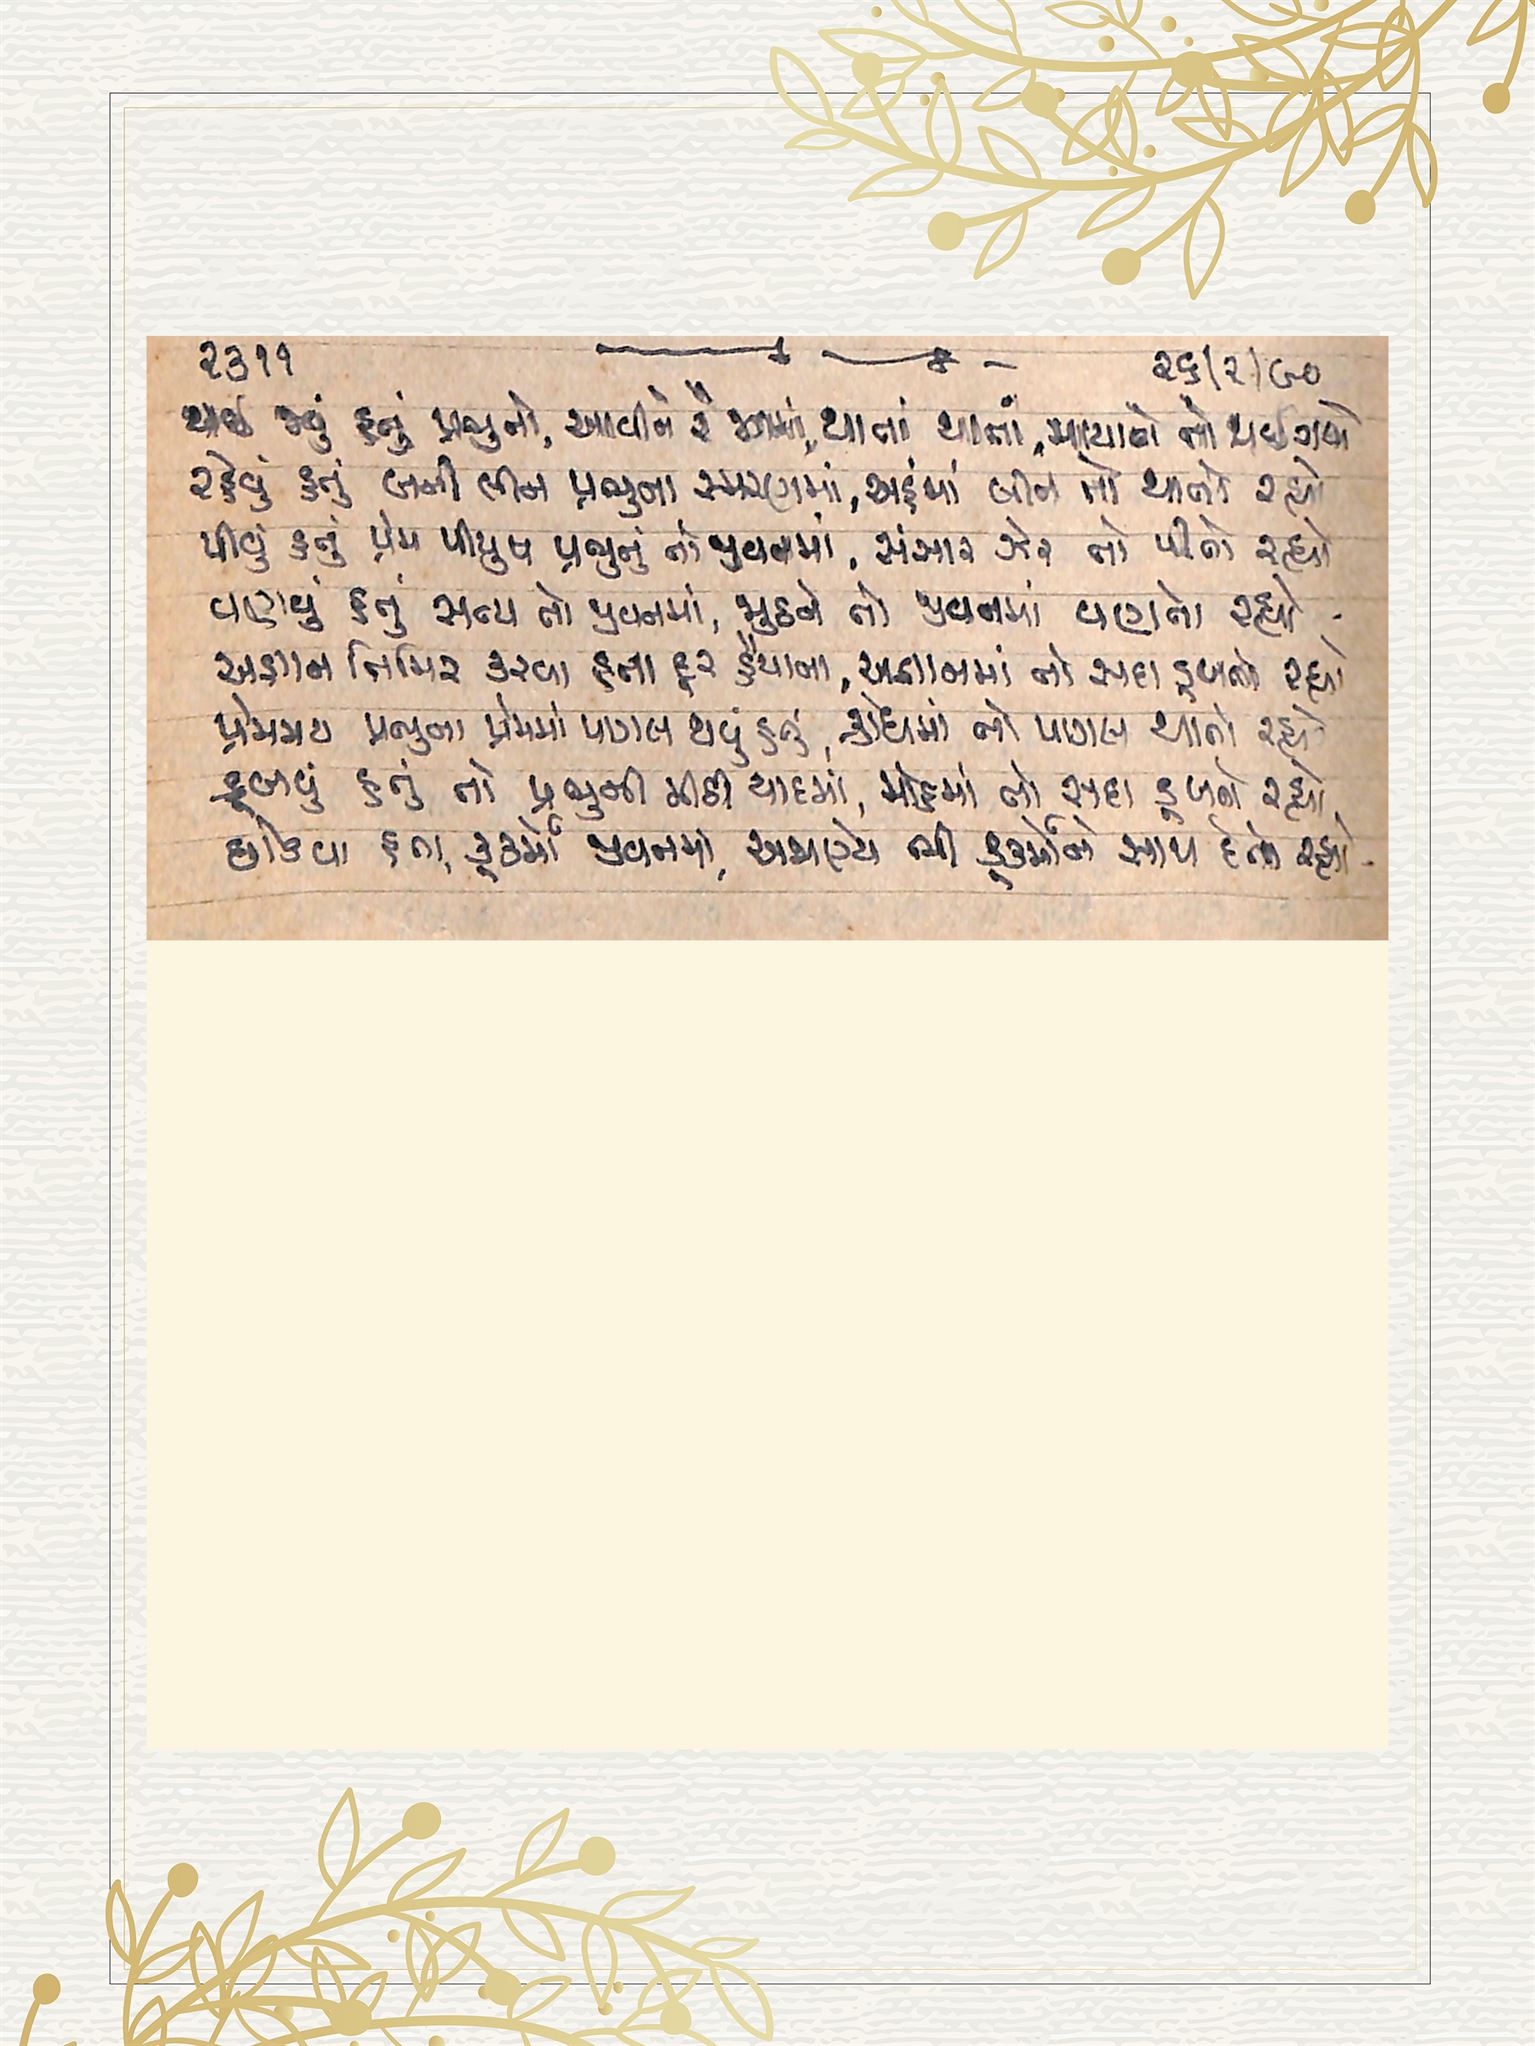 ૨૩૧૧ ૨૬/૨/૯૦
થાવું હતું પ્રભુનો, આવીને રે જગમાં, થાતાં થાતાં, માયાનો તો થઈ ગયો
રહેવું હતું બની લીન પ્રભુના સ્મરણમાં, અહંમાં લીન તો થાતો રહ્યો
પીવું હતું પ્રેમ પીયુષ પ્રભુનું તો જીવનમાં, સંસાર ઝેર તો પીતો રહ્યો
વણવું હતું સત્ય તો જીવનમાં, જુઠને તો જીવનમાં વણતો રહ્યો
અજ્ઞાન તિમિર કરવા હતા દૂર હૈયાના, અજ્ઞાનમાં તો સદા ડૂબતો રહ્યો
પ્રેમમય પ્રભુના પ્રેમમાં પાગલ થવું હતું, ક્રોધમાં તો પાગલ થાતો રહ્યો
ડૂબવું હતું તો પ્રભુની મીઠી યાદમાં, મોહમાં તો સદા ડૂબતો રહ્યો
છોડવા હતા, કૂકર્મો જીવનમાં, અજાણ્યે ભી કૂકર્મોને સાથ દેતો રહ્યો